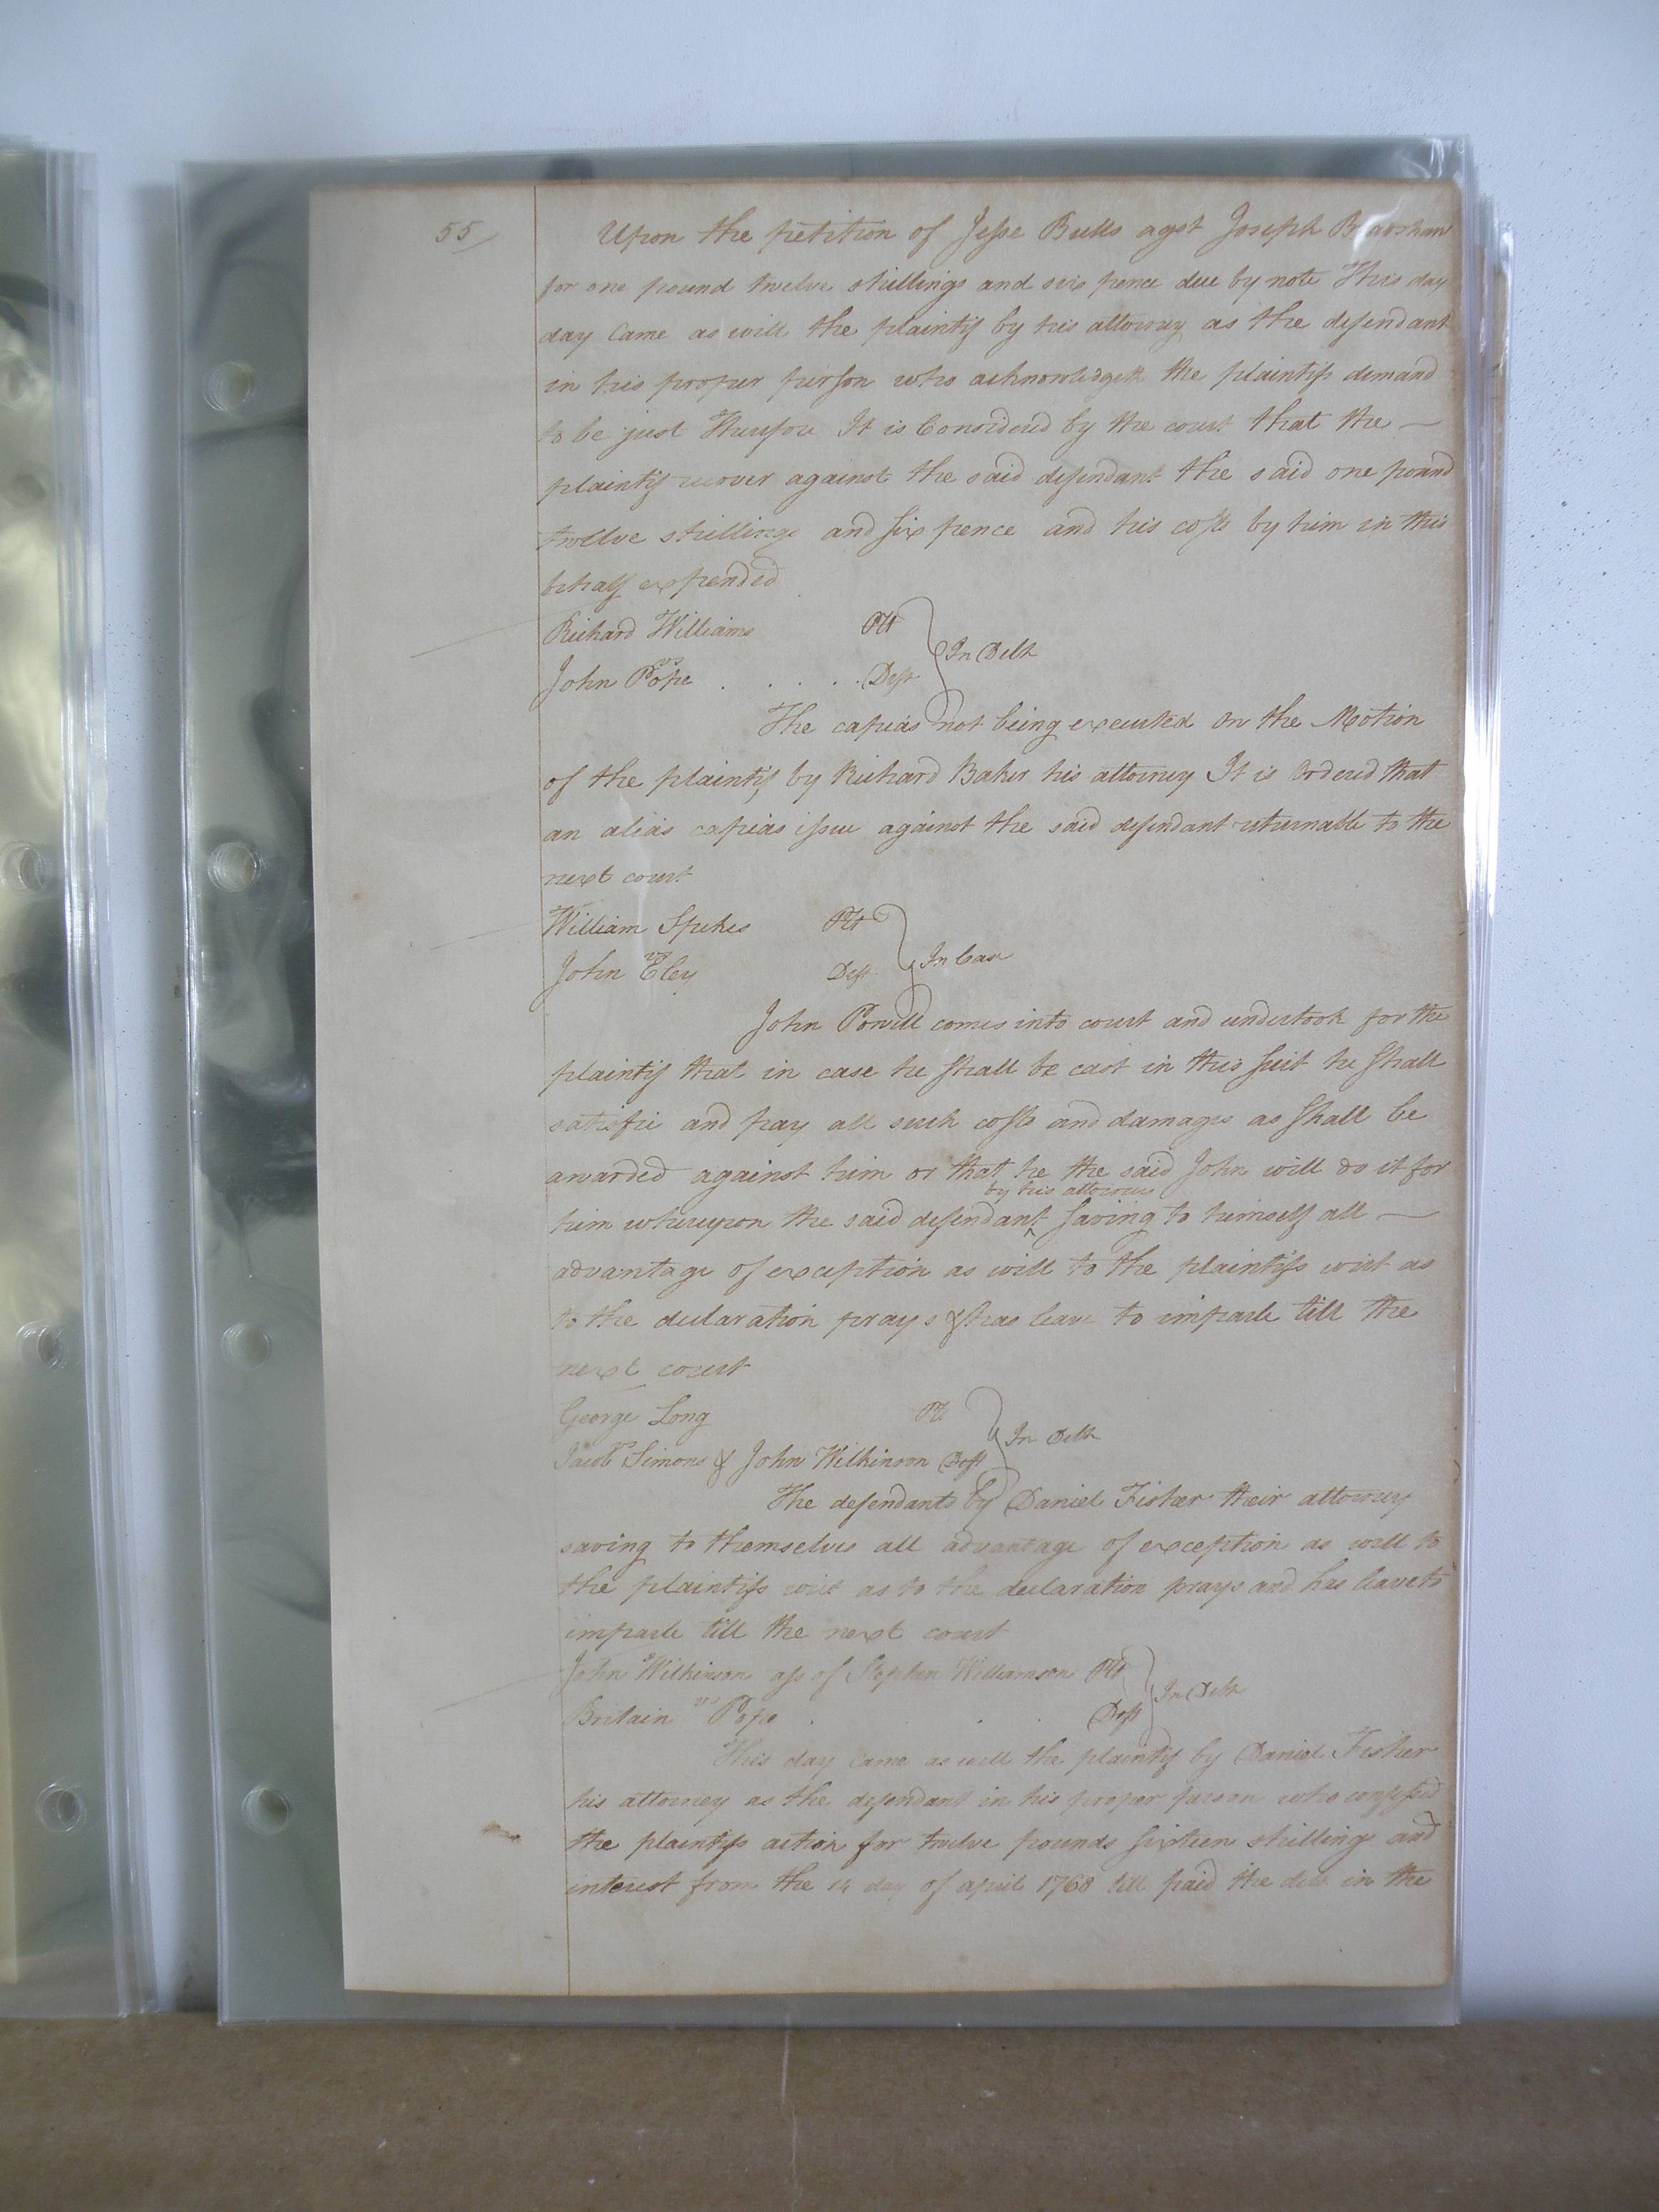 55/
Upon the petition of Jesse Bulls agst Joseph Bradshaw
for one pound twelve shillings and six pence due by note This day
day Came as well the plaintif by his attorney as the defendant
in his proper person who acknowledgeth the plaintifs demand
to be just Therefore It is Considered by the court that the —
plaintif recover against the said defendant the said one pound
twelve shillings and six pence and his costs by him in this
behalf expended
Richard Williams Plt
vs In Debt
John Pope . . . . . Deft
The capias not being executed On the Motion
of the plaintif by Richard Baker his attorney It is Ordered that
an alias capias issue against the said defendant returnable to the
next court
William Spikes Plt
vs In Case
John Eley Deft
John Powell comes into court and undertook for the
plaintif that in case he shall be cast in this suit he shall
satisfie and pay all such costs and damages as shall be
awarded against him or that he the said John will do it for
by his attorney
him whereupon the said defendant ^ saving to himself all —
advantage of exception as well to the plaintifs writ as
to the declaration prays & has leave to imparle till the
next court
George Long Plt
vs In Debt
Jacob Simons & John Wilkinson Deft
The defendants by Daniel Fisher their attorney
saving to themselves all advantage of exception as well to
the plaintifs writ as to the declaration prays and has leave to
imparle till the next court
John Wilkinson ass of Stephen Williamson Plt
vs In Debt
Britain Pope . . . Deft
This day Came as well the plaintif by Daniel Fisher
his attorney as the defendant in his proper person who confessed
the plaintifs action for twelve pounds sixteen shillings and
interest from the 14 day of april 1768 till paid the debt in the